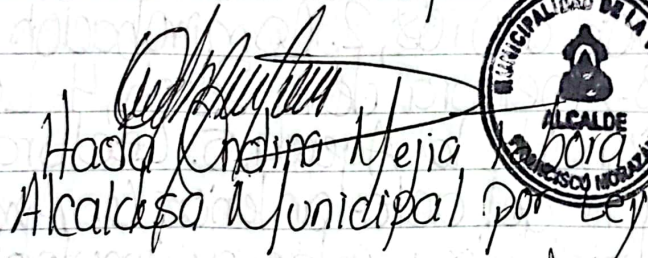 MUNICIPALIDAD DE LA
ALCALDE
FRANCISCO MORAZAN
Hada Mejia
Alcaldesa Municipal por Ley